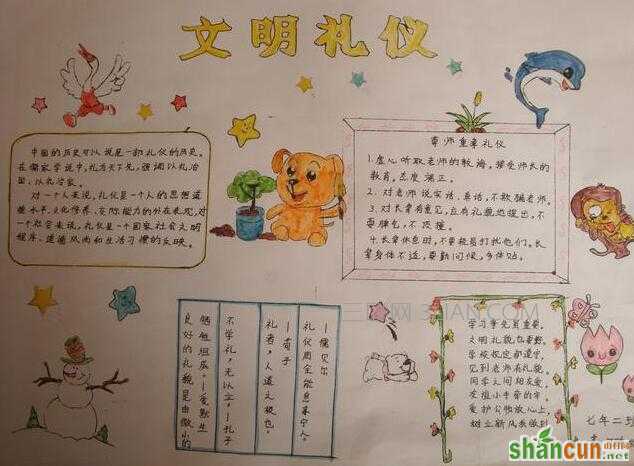 文明礼仪
中国的历史可以说是一部礼仪的历史。
在儒家学说中,礼为天下先,强调以礼治
国、以礼治家。
对一个人来说,礼仪是一个人的思想道
德水平、文化修养、交际能力的外在表现,对
一个社会来说,礼仪是一个国家社会文明
程序、道德风尚和生活习惯的反映。
尊师重辈礼仪
1.虚心听取老师的教诲,接受师长的
教育,态度端正。
2.对老师说实话、真话,不欺骗老师。
3.对长辈有意见,有礼貌地提出,不
要脾气,不顶撞。
4.长辈休息时,不要轻易打扰他们。长
辈身体不适,要勤问候,多体贴。
良好的礼貌是由微小的
牺牲组成。—爱默生
不学礼,无以立。—孔子
礼者,人道之极也。
—荀子
礼仪周全能息事宁人。
—儒贝尔
学习争先最重要,
文明礼貌也要懂,
学校规定都遵守,
见到老师有礼貌。
同学之间相友爱,
爱护公物放心上,
树立新风我做到
七年二班
shancun
.net